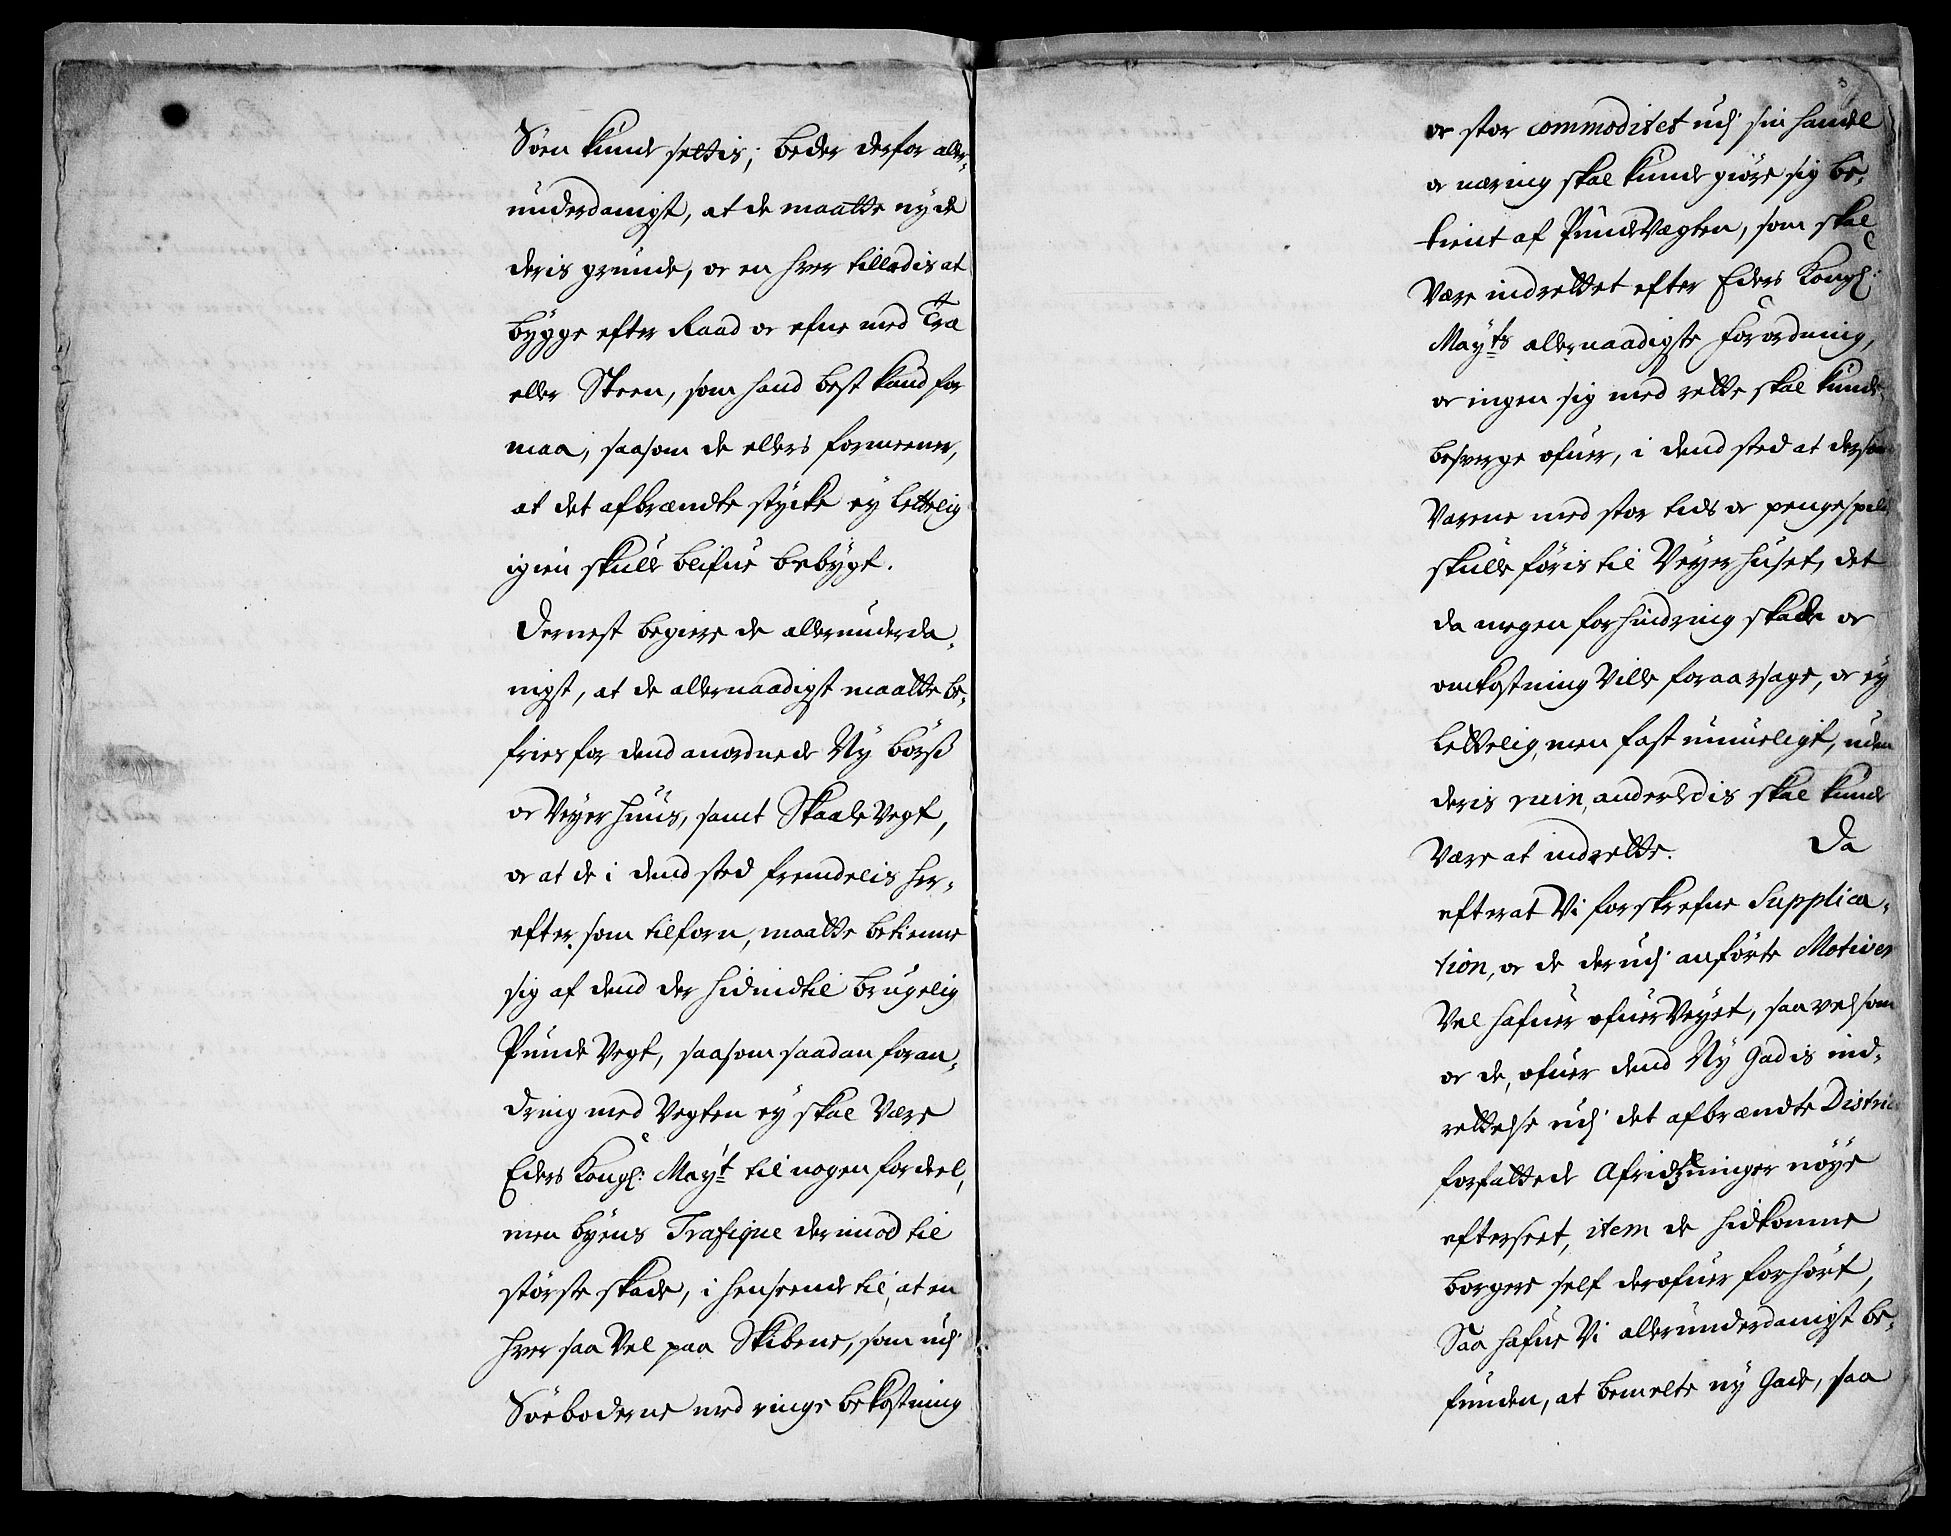 Söen kunde settis; beder derfor aller¬
underdanigst, at de maatte nyde
deris grunde, oc en hver tilladis at
bygge efter Raad oc efne med Træ
eller Steen, som hand best kand for
maa, saasom de ellers formeener,
at det afbrændte stycke ey lettelig
igien skulle blifue bebygt.
Dernest begiere de allerunderda¬
nigst, at de allernaadigst maatte be¬
fries for dend anordnede Ny börs
oc Veyerhuus, samt Skaale Vegt,
oc at de i dend sted fremdelis her¬
efter, som tilforn, maatte betienne
sig af dend der hidindtil brugelig
Punde Vegt, saasom saadan foran¬
dring med Vegten ey skal Være
Eders Kongl: Mayt til nogen fordeel,
men byens Trafique derimod til
störste skade, i henseende til, at en
hver saa Vel paa Skibene, som udj
Söeboderne med ringe bekostning
3
oc stor commoditet udj sin handel
oc næring skal kunde giöre sig be¬
tient af Punde Vegten, som skal
Være indrettet efter Eders Kongl:
Mayts allernaadigste Forordning,
oc ingen sig med rette skal kunde
besverge ofuer, i dend sted at dersom
Varene med stor tids oc pengespilde
skulle föris til Veyerhuset, det
da megen forhindring skade oc
omkostning Ville foraarsage, oc ey
lettelig, men fast umueligt, uden
deris ruin, anderledis skal kunde
Være at indrette. Da
efterat Vi forskrefne Supplica¬
tion, oc de derudj anförte Motiver
Vel hafuer ofuerVeyet, saavelsom
oc de, ofuer dend Ny Gadis ind¬
rettelse udj det afbrændte District
forfattede Afridzninger nöye
efterseet, item de hidkomne
borgere self derofuer forhört,
Saa hafue Vi allerunderdanigst be¬
funden, at bemelte ny Gade, saa